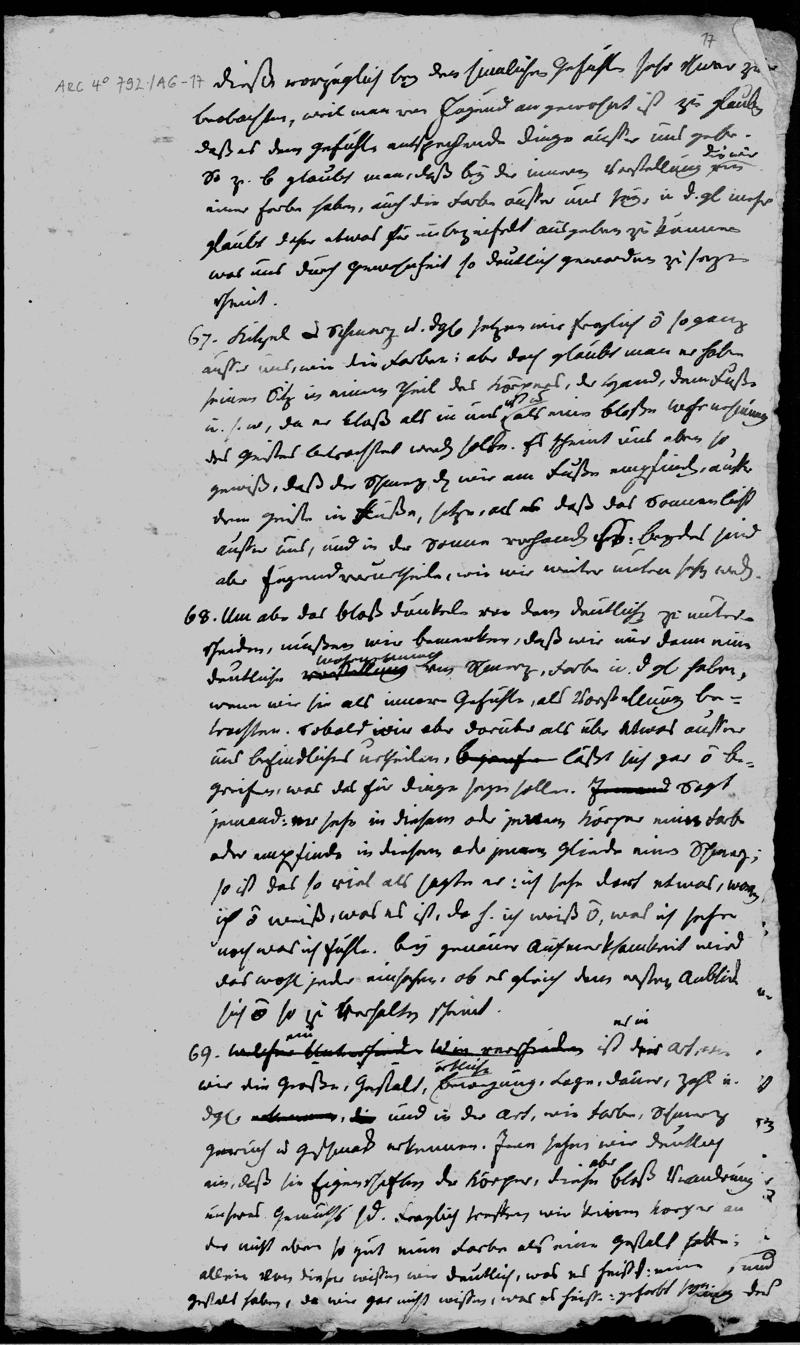 17
ARC 4° 792/A6-17
dieß vorzüglich bey den sinnlichen Gefühlen sehr schwer zu
beobachten, weil man von Jugend an gewohnt ist zu glauben
daß es dem Gefühle entsprechende Dinge ausser uns gebe.
So z. B glaubt man, daß bey der innern Vorstellung die wir
einer Farbe haben, auch die Farbe ausser uns sey u d. gl mehr
glaubt daher etwas für unbezweifelt ausgeben zu können
was uns durch Gewohnheit so deutlich geworden zu seyn
scheint.
67. Kitzel u Schmerz u. dgl setzen wir freylich ō so ganz
ausser uns, wie die Farben: aber doch glaubt man er habe
seinen Sitz in einem Theil des Körpers, der Hand, dem Fuße
u. s. w, da er bloß als in uns u als eine bloße Wahrnehmung
des Geistes betrachtet werden sollte. Es scheint uns eben so
gewiß, daß der Schmerz den wir am Fuße empfinden, ausser
dem Geiste im Fuße, sitze, als es daß das Sonnenlicht
ausser uns, und in der Sonne vorhanden sey: beydes sind
aber Jugendvorurtheile, wie wir weiter unten sehen werden.
68. Um aber das bloß dunkele von dem deutlichen zu unter-
scheiden, müßen wir bemerken, daß wir nur dann eine
deutliche Vorstellung von Schmerz, Farbe u. d gl haben,
wenn wir sie als innere Gefühle, als Vorstellung be-
trachten. Sobald wir aber darüber als über etwas ausser
uns befindliches urtheilen, läßt sich gar ō be-
greifen, was das für Dinge seyn sollen. Jemand Sagt
jemand: er sehe in diesem oder jenem Körper eine Farbe
oder empfinde in diesem oder jenem Gliede einen Schmerz;
so ist das so viel als sagte er: ich sehe dort etwas, wovon
ich ō weiß, was es ist, d. h. ich weiß ō, was ich sehe
noch was ich fühle. Bey genauer Aufmerksamkeit wird
das wohl jeder einsehen, ob es gleich dem ersten Anblick
sich ō so zu verhalten scheint.
69. ist die Art,
wie die Größe, Gestalt, örtliche Bewegung, Lage, Dauer, Zahl u.
dgl und in der Art, wie Farbe, Schmerz
Geruch u Geschmak erkennen. Jene sehen wir deutlich
ein, daß sie Eigenschaften der Körper, diese aber bloß Veränderung
unseres Gemüths sd. Freylich treffen wir keinen Körper an
der nicht eben so gut eine Farbe als eine Gestalt hätte;
allein von dieser wissen wir deutlich, was es heißt: eine
Gestalt haben, da wir gar nicht wissen, was es heiße: gefärbt seyn